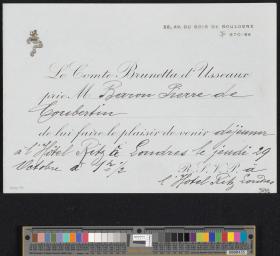 28, AV. DU BOIS DE BOULOGNE
670-86
Le Comte Brunetta d'Usseaux
prie M. Baron Pierre de
Coubertin
de lui faire le plaisir de venir déjeuner
à l'Hôtel Ritz à Londres le jeudi 29
Octobre à 1 h 1/2
R. S. V. P. à
l'Hôtel Ritz Londres